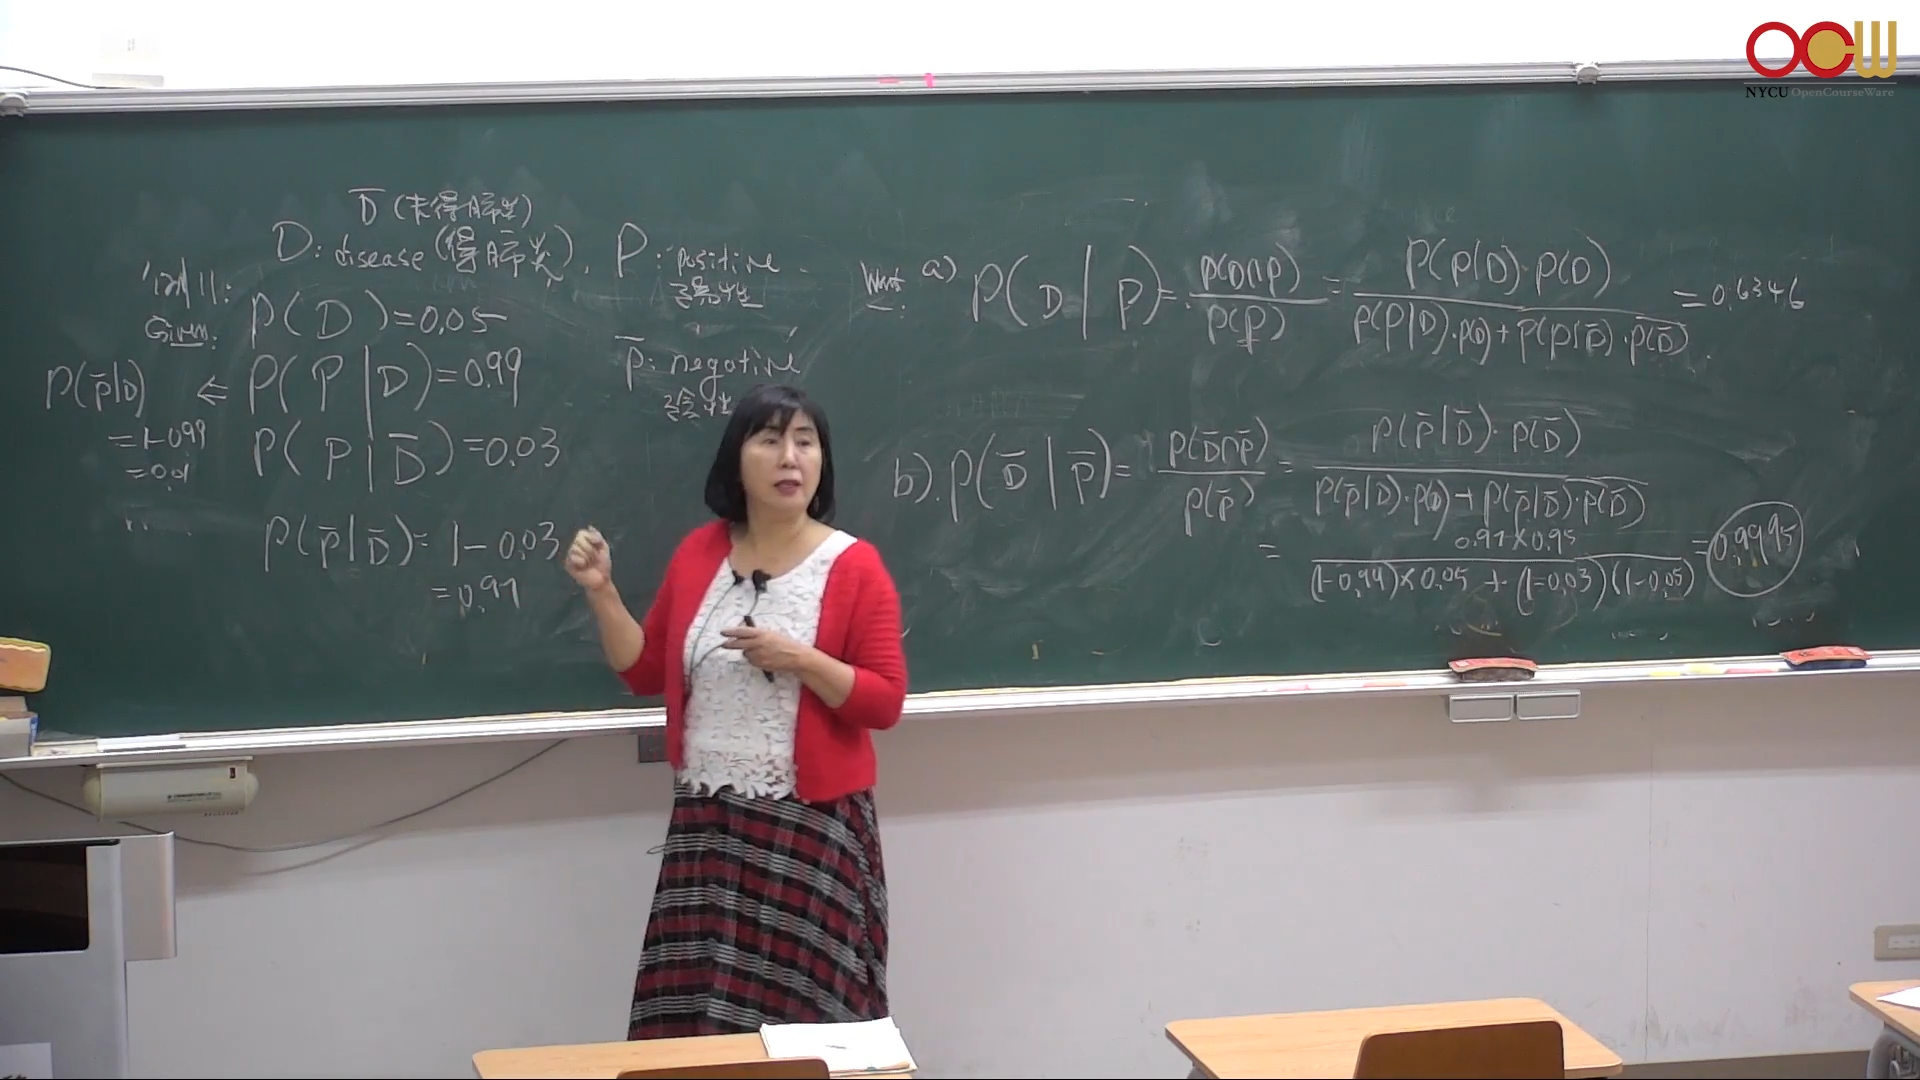 OCW
NYCU OpenCourseWare
D̄ (未得肺炎)
D: disease (得肺炎), P: positive
陽性
例11:
Given: P(D)=0.05
P(P̄|D) ⇐ P(P|D)=0.99
=1-0.99
=0.01
P(P|D̄)=0.03
P(P̄|D̄)= 1-0.03
=0.97
P̄: negative
陰性
Want: a) P(D|P)= P(D∩P)/P(P) = P(P|D)·P(D) / P(P|D)·P(D)+P(P|D̄)·P(D̄) =0.6346
b). P(D̄|P̄)= P(D̄∩P̄)/P(P̄) = P(P̄|D̄)·P(D̄) / P(P̄|D)·P(D)+P(P̄|D̄)·P(D̄)
= 0.97×0.95 / (1-0.99)×0.05 + (1-0.03)(1-0.05) =0.9995